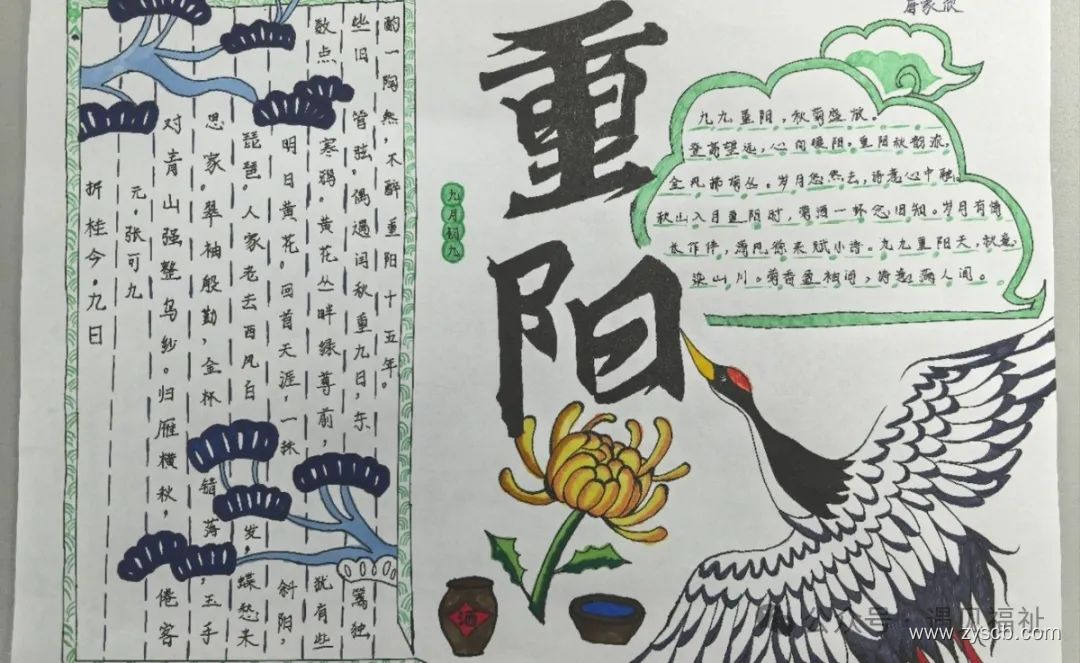 折桂令·九日
元·张可九
对青山强整乌纱。归雁横秋，倦客
思家。翠袖殷勤，金杯错落，玉手
琵琶。人家老去西风白发，蝶愁来
明日黄花。回首天涯，一抹斜阳，
数点寒鸦。黄花丛畔绿尊前，犹有些
些旧管弦，偶遇闰秋重九日，东篱独
酌一陶然，不醉重阳十五年。
重阳
九月初九
九九重阳，秋菊盛放。
登高望远，心向暖阳。重阳秋韵浓，
金风拂菊丛。岁月悠然去，诗意心中融。
秋山入目重阳时，菊酒一杯念旧知。岁月有情
长作伴，清风徐来赋小诗。九九重阳天，秋意
染山川。菊香盈袖间，诗意满人间。
酒
公众号·遇见福祉
www.zyscb.com